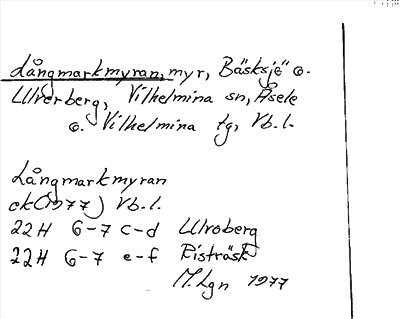 Långmarkmyran, myr, Bäsksjö o.
Ulvoberg, Vilhelmina sn, Åsele
o. Vilhelmina tg, Vb.l.
Långmarkmyran
ek(1977) Vb.l.
22H 6-7 c-d Ulvoberg
22H 6-7 e-f Risträsk
M.Lgn 1977